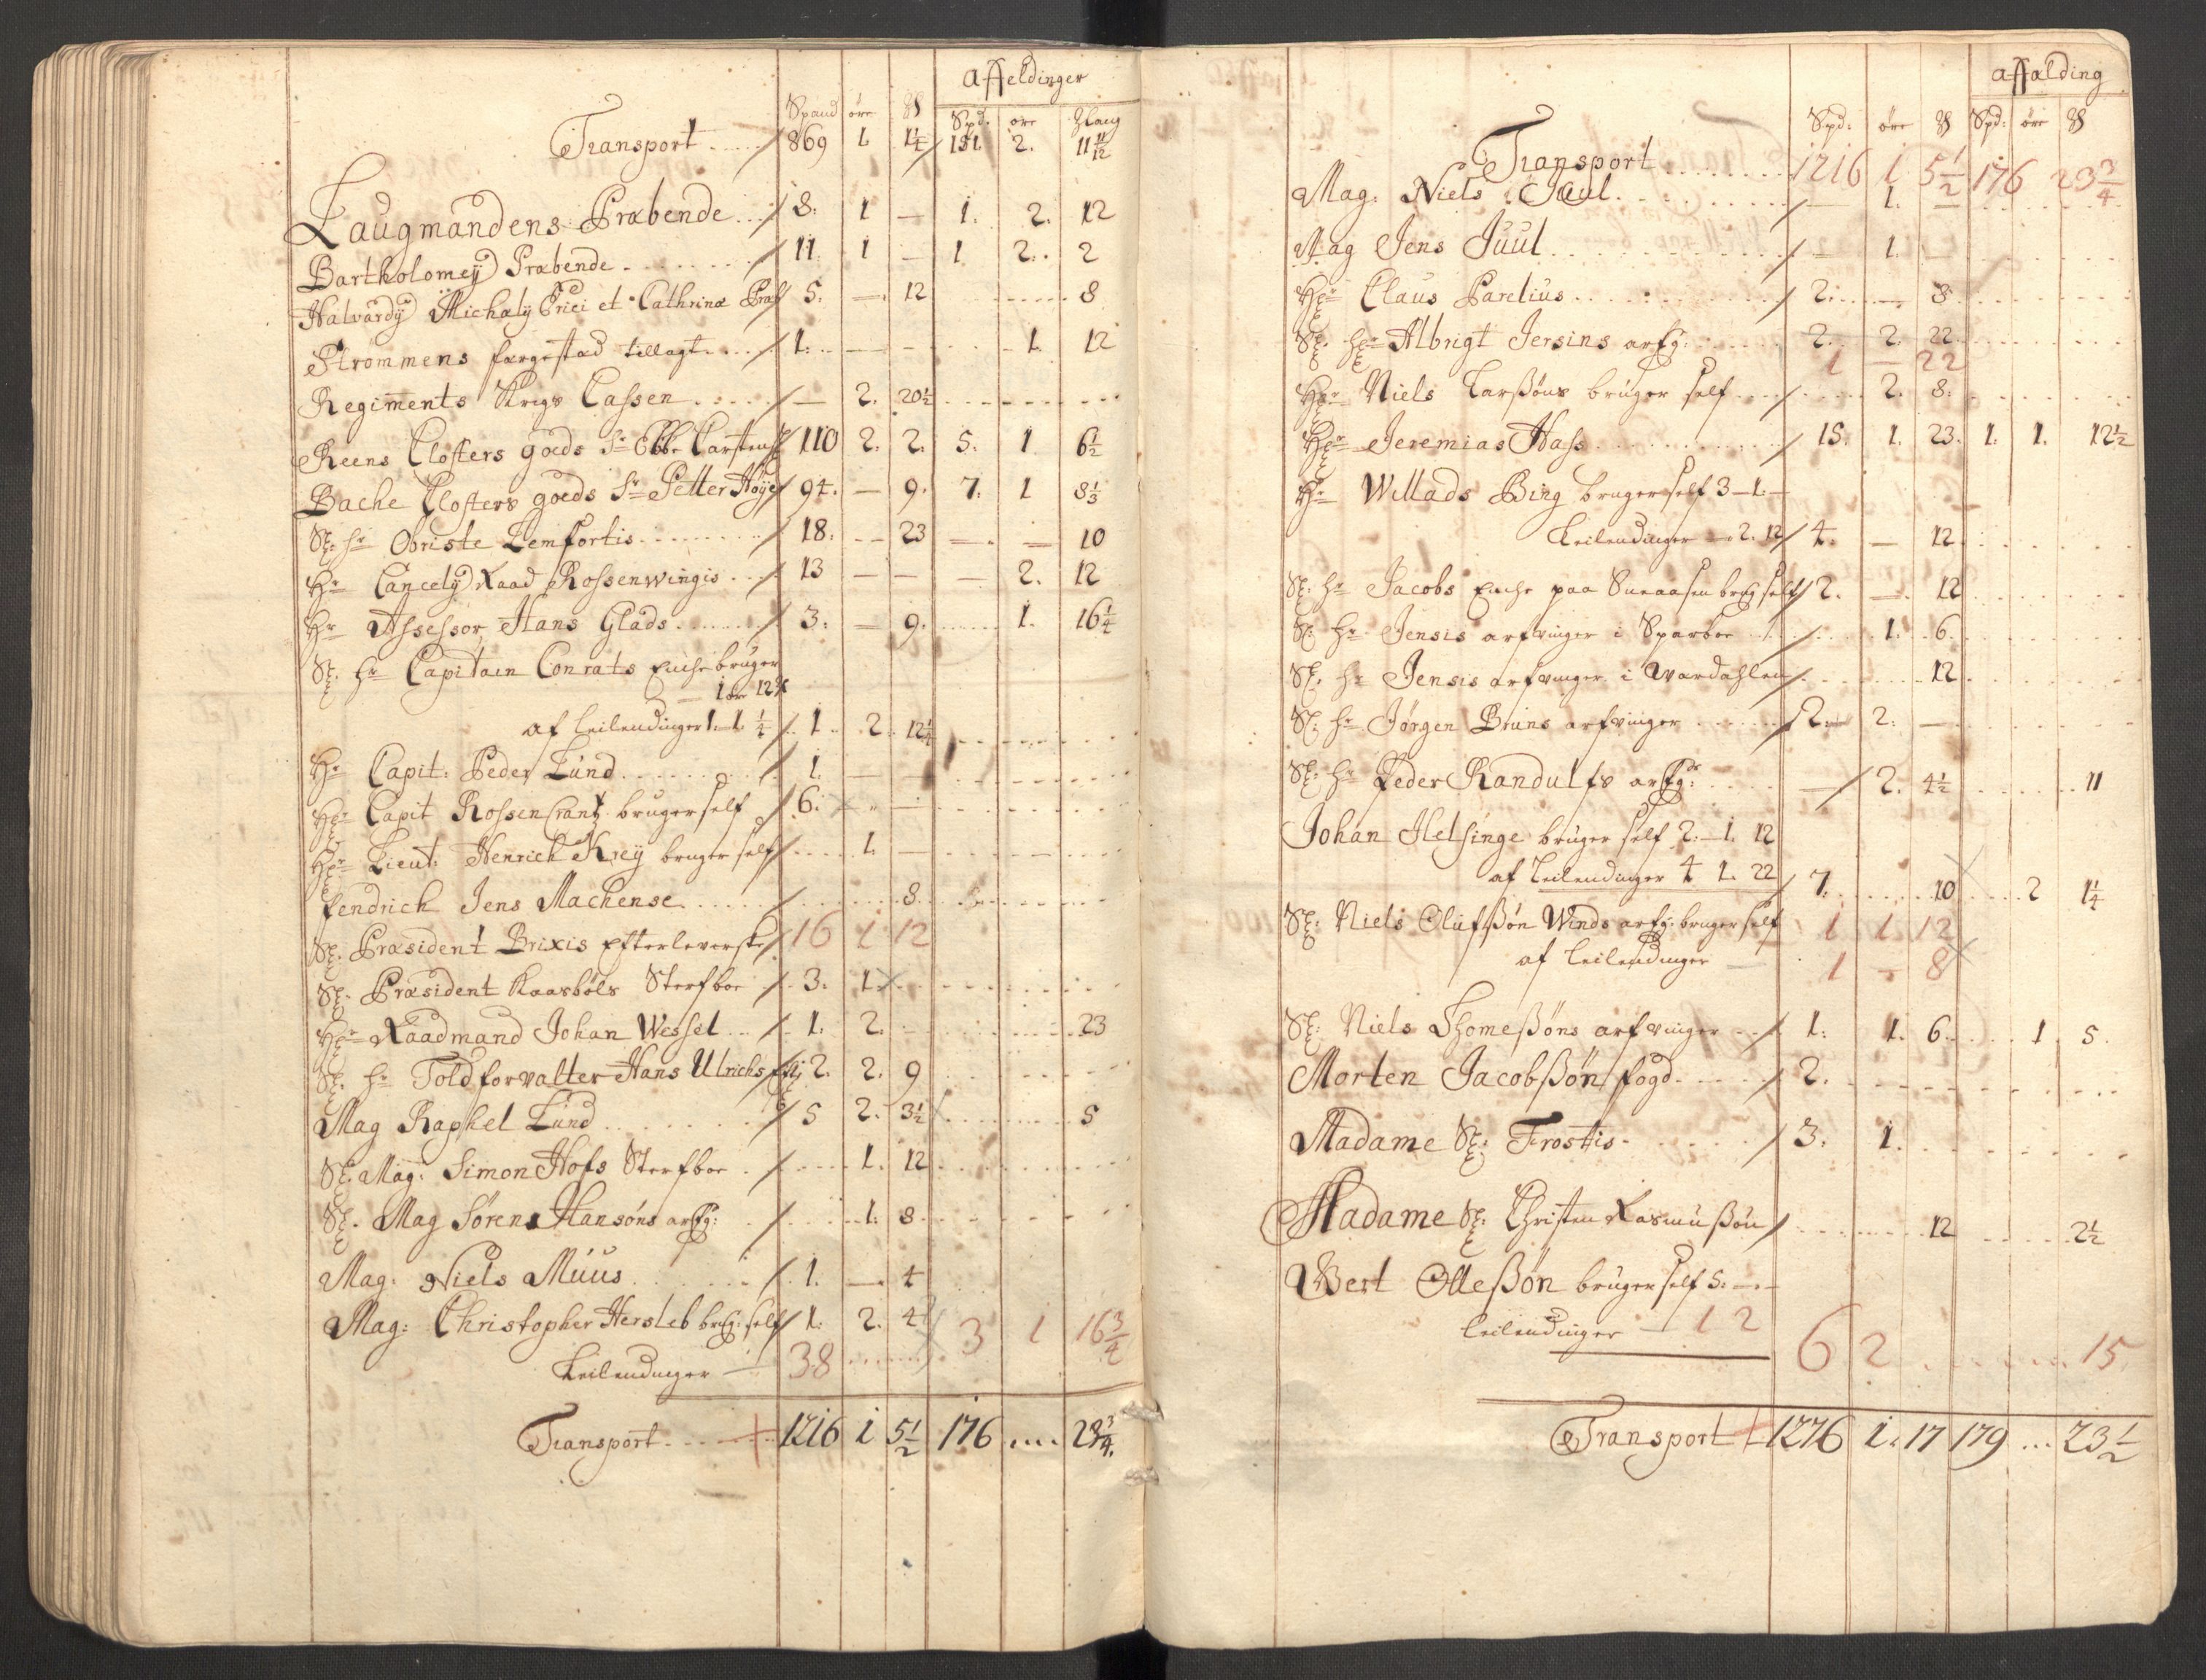 affeldinger
Spand øre Spd. øre
Transport 869 1 1 1/4 151. 2. 11 11/12
Laugmandens Præbende 8: 1 — 1. 2. 12
Bartholomeÿ Præbende 11. 1 — 1 2. 2
Halvardÿ Michaelÿ Erici et Cathrinæ Præb 5. — 12 8
Strømmens færgestad tillagt 1. — — 1. 12
Regiments Krigs Cassen — 2. 20 1/2
Reens Closters goeds Sr Ebbe Carstens 110 2. 2. 5. 1 6 1/2
Bache Closters goeds Sr Petter Høÿer 94. — 9. 7. 1 8 1/3
Sl. hr Obriste Lemfortis 18. — 23 — — 10
Hr Cancelÿ Raad Rossenwingis 13 — — — 2. 12
Hr Assessor Hans Glads 3. — 9. 1. 16 1/4
Sl. hr Capitain Conrats Enche bruger
1 ør 12
af Leilendinger 1. 1. 1/4 1 2 12 1/4
Hr Capit: Peder Lund 1. — —
Hr Capit Rossencrantz bruger self 6. — —
Hr Lieut: Henrich Kreÿ bruger self 1. —
fendrich Jens Machense 8.
Sl. Præsident Brixis Efterleverske 16 1 12
Sl. Præsident Kaasbøls Sterfboe 3. 1.
Hr Raadmand Johan Wessel 1. 2. — 23
Sl. hr Toldforvalter Hans Ulrichs 2. 2. 9
Mag Raphel Lund 5 2. 3 1/2 5
Sl. Mag: Simon Hofs Sterfboe 1. 12
Sl. Mag Sørens Hansøns arfg: 1. 8
Mag: Niels Muus 1. — 4
Mag: Christopher Hersleb brug: self 1. 2. 4
Leilendinger — 38 3 1 16 3/4
Transport 1216 1 5 1/2 176 .... 23 3/4
affalding
Spd: øre Spd: øre
Transport 1216 1 5 1/2 176 23 3/4
Mag: Niels Juul — 1. —
Mag Jens Juul — 1. —
Hr Claus Parelius 2. — 8
Sl. hr Albrigt Jersins arfg: 2. 2. 22
1 — 22
Hr Niels Larssøns bruger self 2. 8.
Hr Jeremias Hass 15. 1. 23. 1. 1. 12 1/2
Hr Willads Bing bruger self 3—1.—
Leilendinger — 2. 12 4. — 12
Sl. hr Jacobs Enche paa Sneaasen brug self 2. — 12
Sl. hr Jensis arfvinger i Sparboe 1. 6
Sl. hr Jensis arfvinger i Wardahlen 12
Sl. hr Jørgen Bruns arfvinger 2. 2. —
Sl. hr Peder Randulfs arfg: — 2. 4 1/2 11
Johan Helsinge bruger self 2.—1. 12
af Leilendinger 4 1. 22 7. 10 2 1 1/4
Sl: Niels Olufssøn Winds arfg. bruger self 1 1 12
af Leilendinger — 1 — 8
Sl: Niels Thomessøns arfvinger 1. 1. 6. 1. 5.
Morten Jacobssøn fogd 2.
Madame Sl: Frostis 3. 1.
Madame Sl: Christen Rasmussøn 12 2 1/2
Bert Ollessøn bruger self 5. —
Leilendinger — 1 2 6 2 15
Transport 1276 1. 17 179 ... 23 1/2